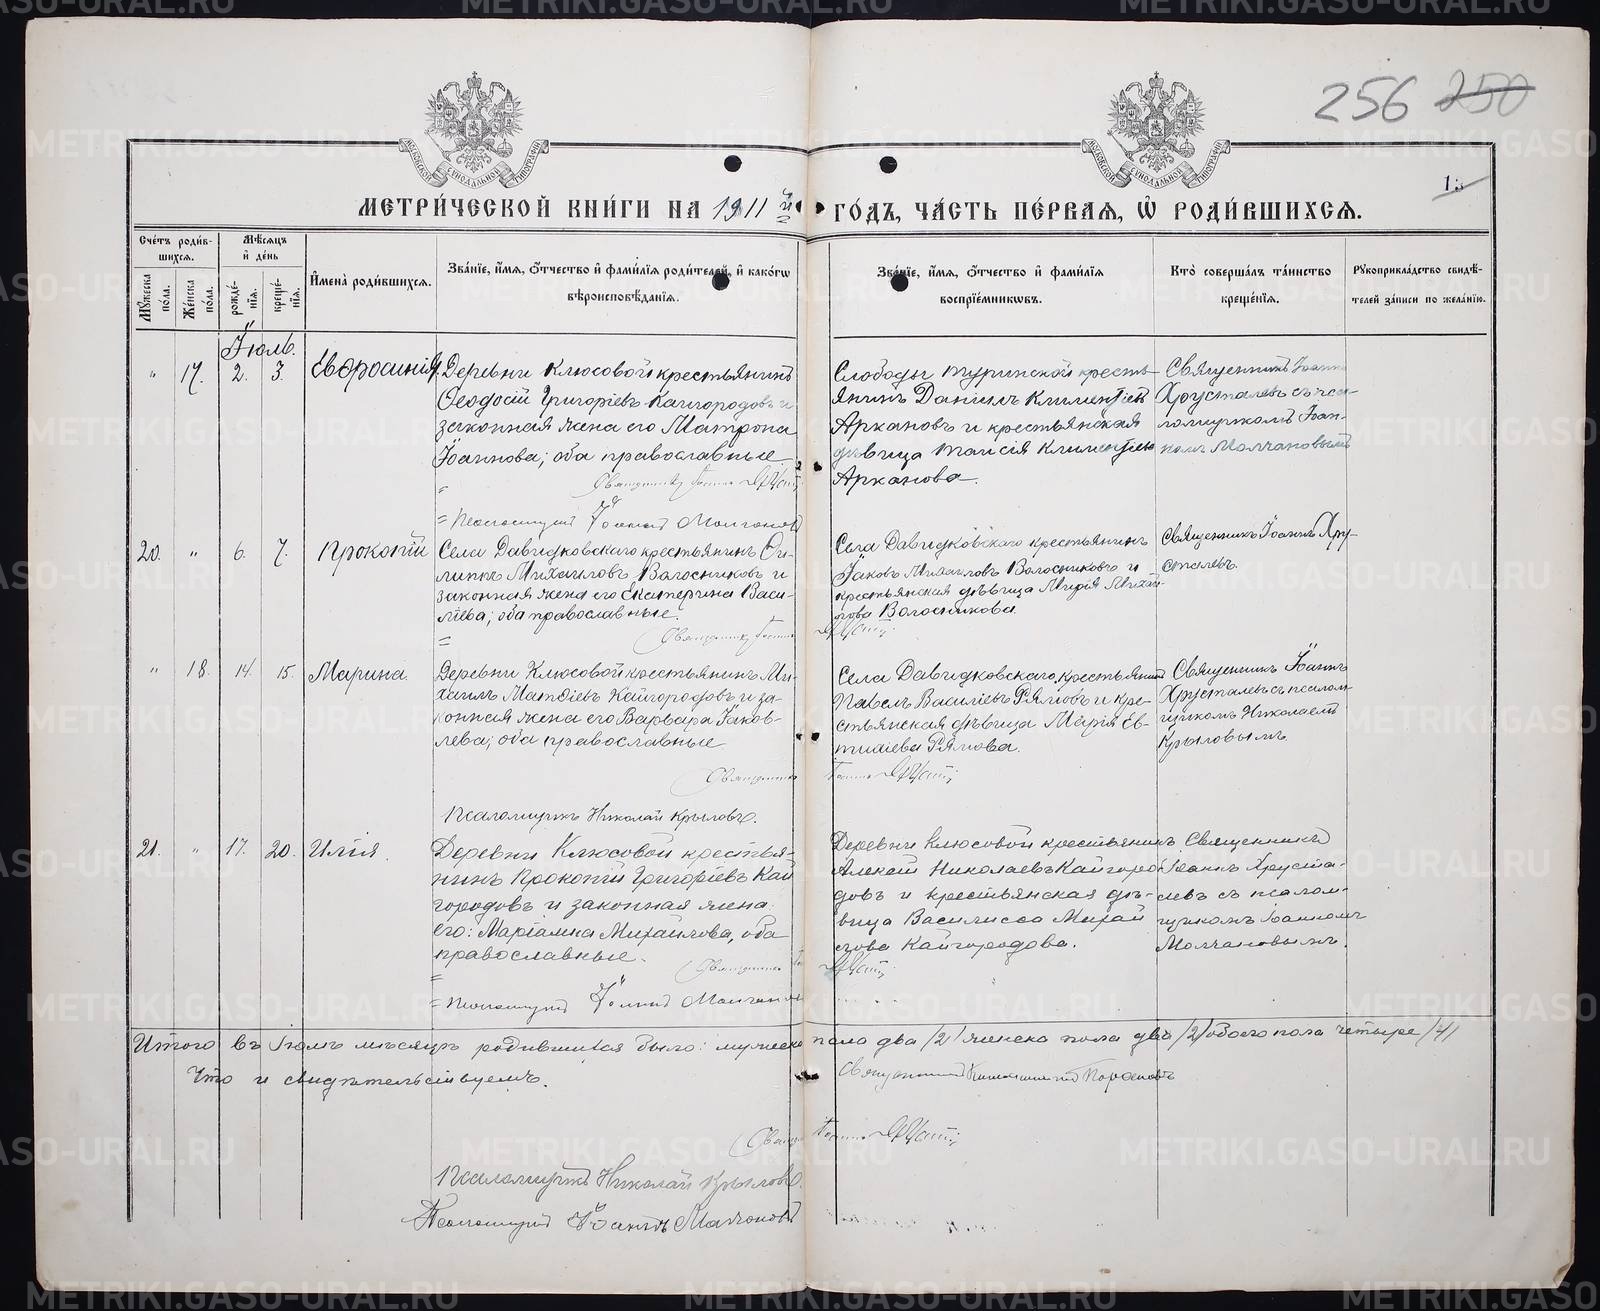 256 250
13
МЕТРИ́ЧЕСКОЙ КНИ́ГИ НА 1911 й ГО́ДЪ, ЧА́СТЬ ПЕ́РВАЯ, Ѡ РОДИ́ВШИХСЯ.
Сче́тъ роди́в-
шихся.
Му́жеска пола.
Же́нска пола.
Мѣ́сяцъ
и де́нь
рожде́-
нія.
креще́-
нія.
Имена̀ роди́вшихся.
Зва́ніе, и́мя, о́тчество и фами́лія роди́телей, и како́гѡ
вѣроисповѣ́данія.
Зва́ніе, и́мя, о́тчество и фами́лія
воспріе́мниковъ.
Кто̀ соверша́лъ та́инство
креще́нія.
Рукоприкла́дство свидѣ́-
телей за́писи по жела́нію.
Іюль.
" 17. 2. 3. Евфросинія.
Деревни Клюсовой крестьянинъ
Ѳеодосій Григоріевъ Кайгородовъ и
законная жена его Матрона
Іоаннова; оба православные
Священникъ Іоаннъ
Псаломщикъ Іоаннъ Молчановъ
Слободы Туринской кресть-
янинъ Даніилъ Климентіев
Аркановъ и крестьянская
дѣвица Таисія
Арканова.
Священникъ Іоаннъ
Хрусталевъ съ пса-
ломщикомъ Іоан-
номъ Молчановымъ
20. " 6. 7. Прокопій
Села Давыдковскаго крестьянинъ Фи-
липпъ Михаиловъ Волосниковъ и
законная жена его Екатерина Васи-
ліева; оба православные.
Священникъ Іоаннъ
Села Давыдковскаго крестьянинъ
Іаковъ Михаиловъ Волосниковъ и
крестьянская дѣвица Марія Михаи-
лова Волосникова.
Священникъ Іоаннъ Хру-
сталевъ.
" 18. 14. 15. Марина.
Деревни Клюсовой крестьянинъ Ми-
хаилъ Матѳіевъ Кайгородовъ и за-
конная жена его Варвара Іаков-
лева; оба православные
Священникъ Іоаннъ
Псаломщикъ Николай Крыловъ.
Села Давыдковскаго, крестьянинъ
Павелъ Василіевъ Рямовъ и кре-
стьянская дѣвица Марія Ев-
Рямова.
Священникъ Іоаннъ
Хрусталевъ съ псалом-
щикомъ Николаемъ
Крыловымъ.
21. " 17. 20. Илія.
Деревни Клюсовой крестья-
нинъ Прокопій Григоріевъ Кай
городовъ и законная жена
его: Маріамна Михаилова, оба
православные.
Священникъ
Псаломщикъ Іоаннъ Молчановъ
Деревни Клюсовой крестьянинъ
Алексій Николаевъ Кайгоро-
довъ и крестьянская дѣ-
вица Василисса Михаи
лова Кайгородова.
Священникъ
Іоаннъ Хруста-
левъ съ псалом-
щикомъ Іоанномъ
Молчановымъ.
Итого въ Іюлѣ мѣсяцѣ родившихся было: мужеска пола два /2/ женска пола два /2/ обоего пола четыре /4/
Что и свидѣтельствуемъ.
Священникъ
Священникъ Іоаннъ
Псаломщикъ Николай Крыловъ.
Псаломщикъ Іоаннъ Молчановъ